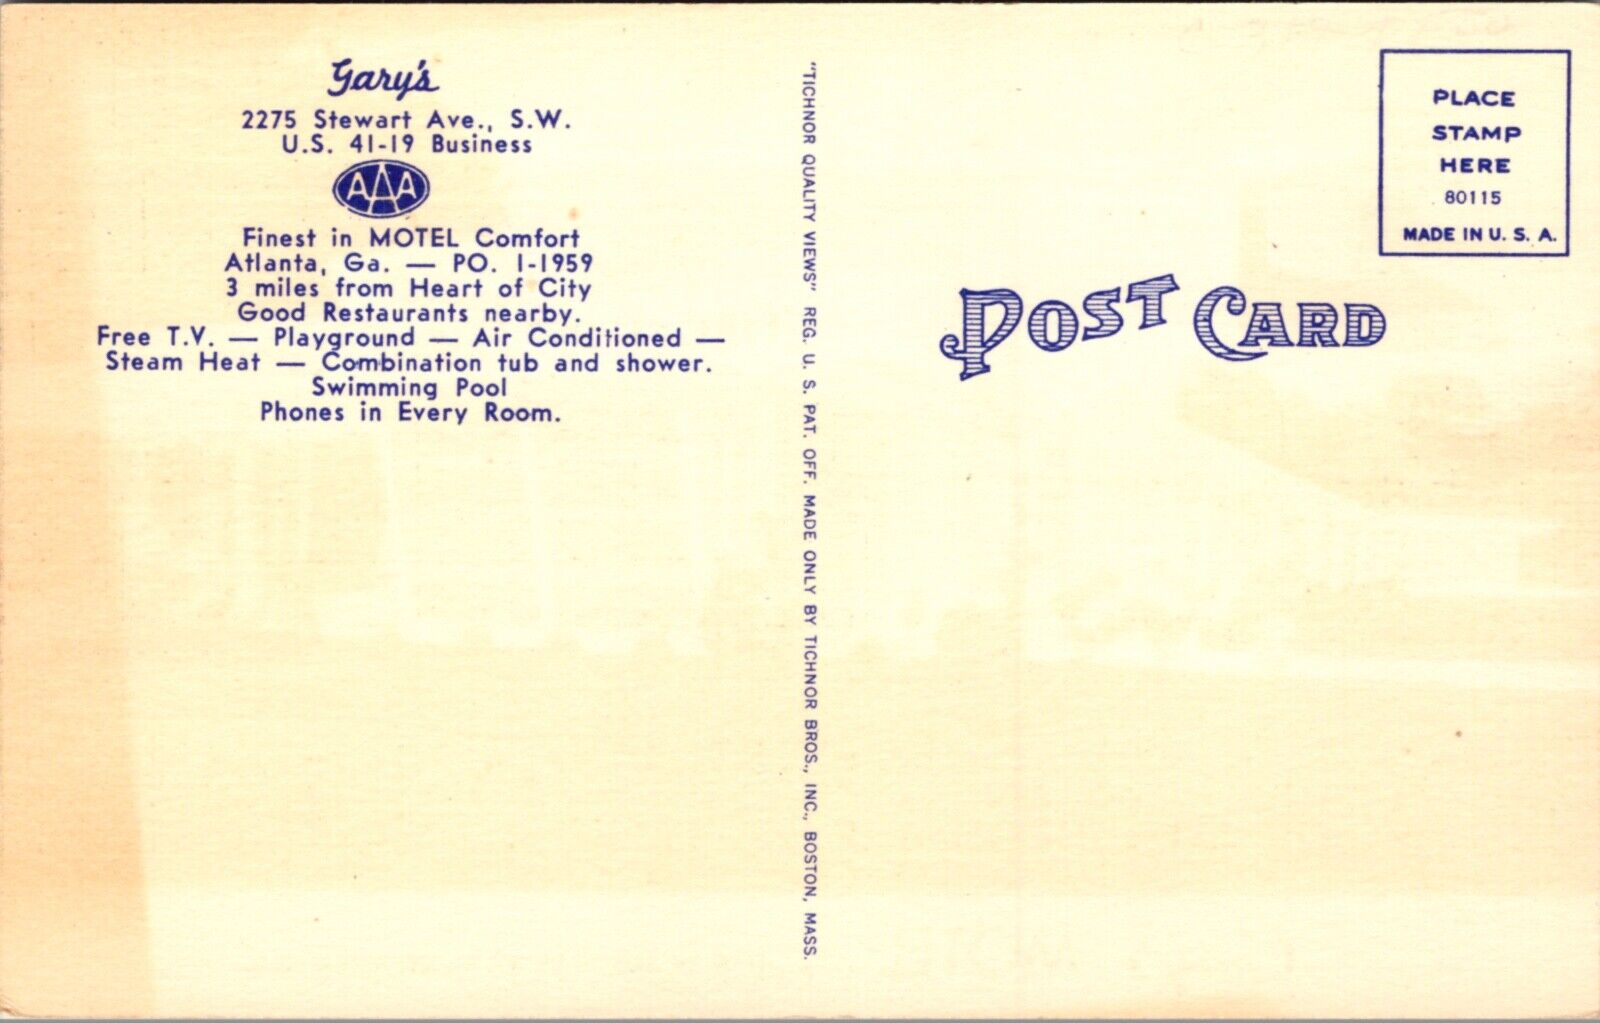 Gary's
2275 Stewart Ave., S.W.
U.S. 41-19 Business
AAA
Finest in MOTEL Comfort
Atlanta, Ga. — PO. 1-1959
3 miles from Heart of City
Good Restaurants nearby.
Free T.V. — Playground — Air Conditioned —
Steam Heat — Combination tub and shower.
Swimming Pool
Phones in Every Room.
"TICHNOR QUALITY VIEWS" REG. U. S. PAT. OFF. MADE ONLY BY TICHNOR BROS., INC., BOSTON, MASS.
PLACE
STAMP
HERE
80115
MADE IN U. S. A.
POST CARD